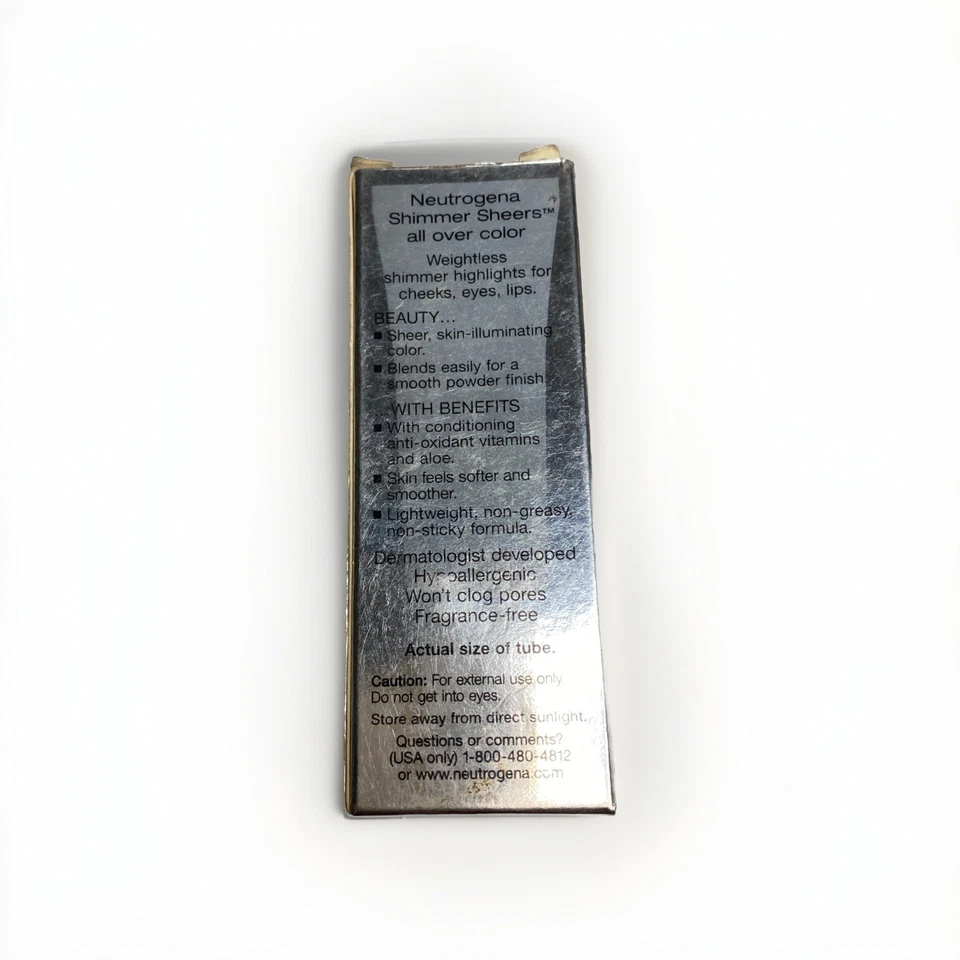 Neutrogena
Shimmer Sheers™
all over color
Weightless
shimmer highlights for
cheeks, eyes, lips.
BEAUTY...
▪ Sheer, skin-illuminating
color.
▪ Blends easily for a
smooth powder finish
...WITH BENEFITS
▪ With conditioning
anti-oxidant vitamins
and aloe.
▪ Skin feels softer and
smoother.
▪ Lightweight, non-greasy,
non-sticky formula.
Dermatologist developed
Hypoallergenic
Won't clog pores
Fragrance-free
Actual size of tube.
Caution: For external use only.
Do not get into eyes.
Store away from direct sunlight.
Questions or comments?
(USA only) 1-800-480-4812
or www.neutrogena.com